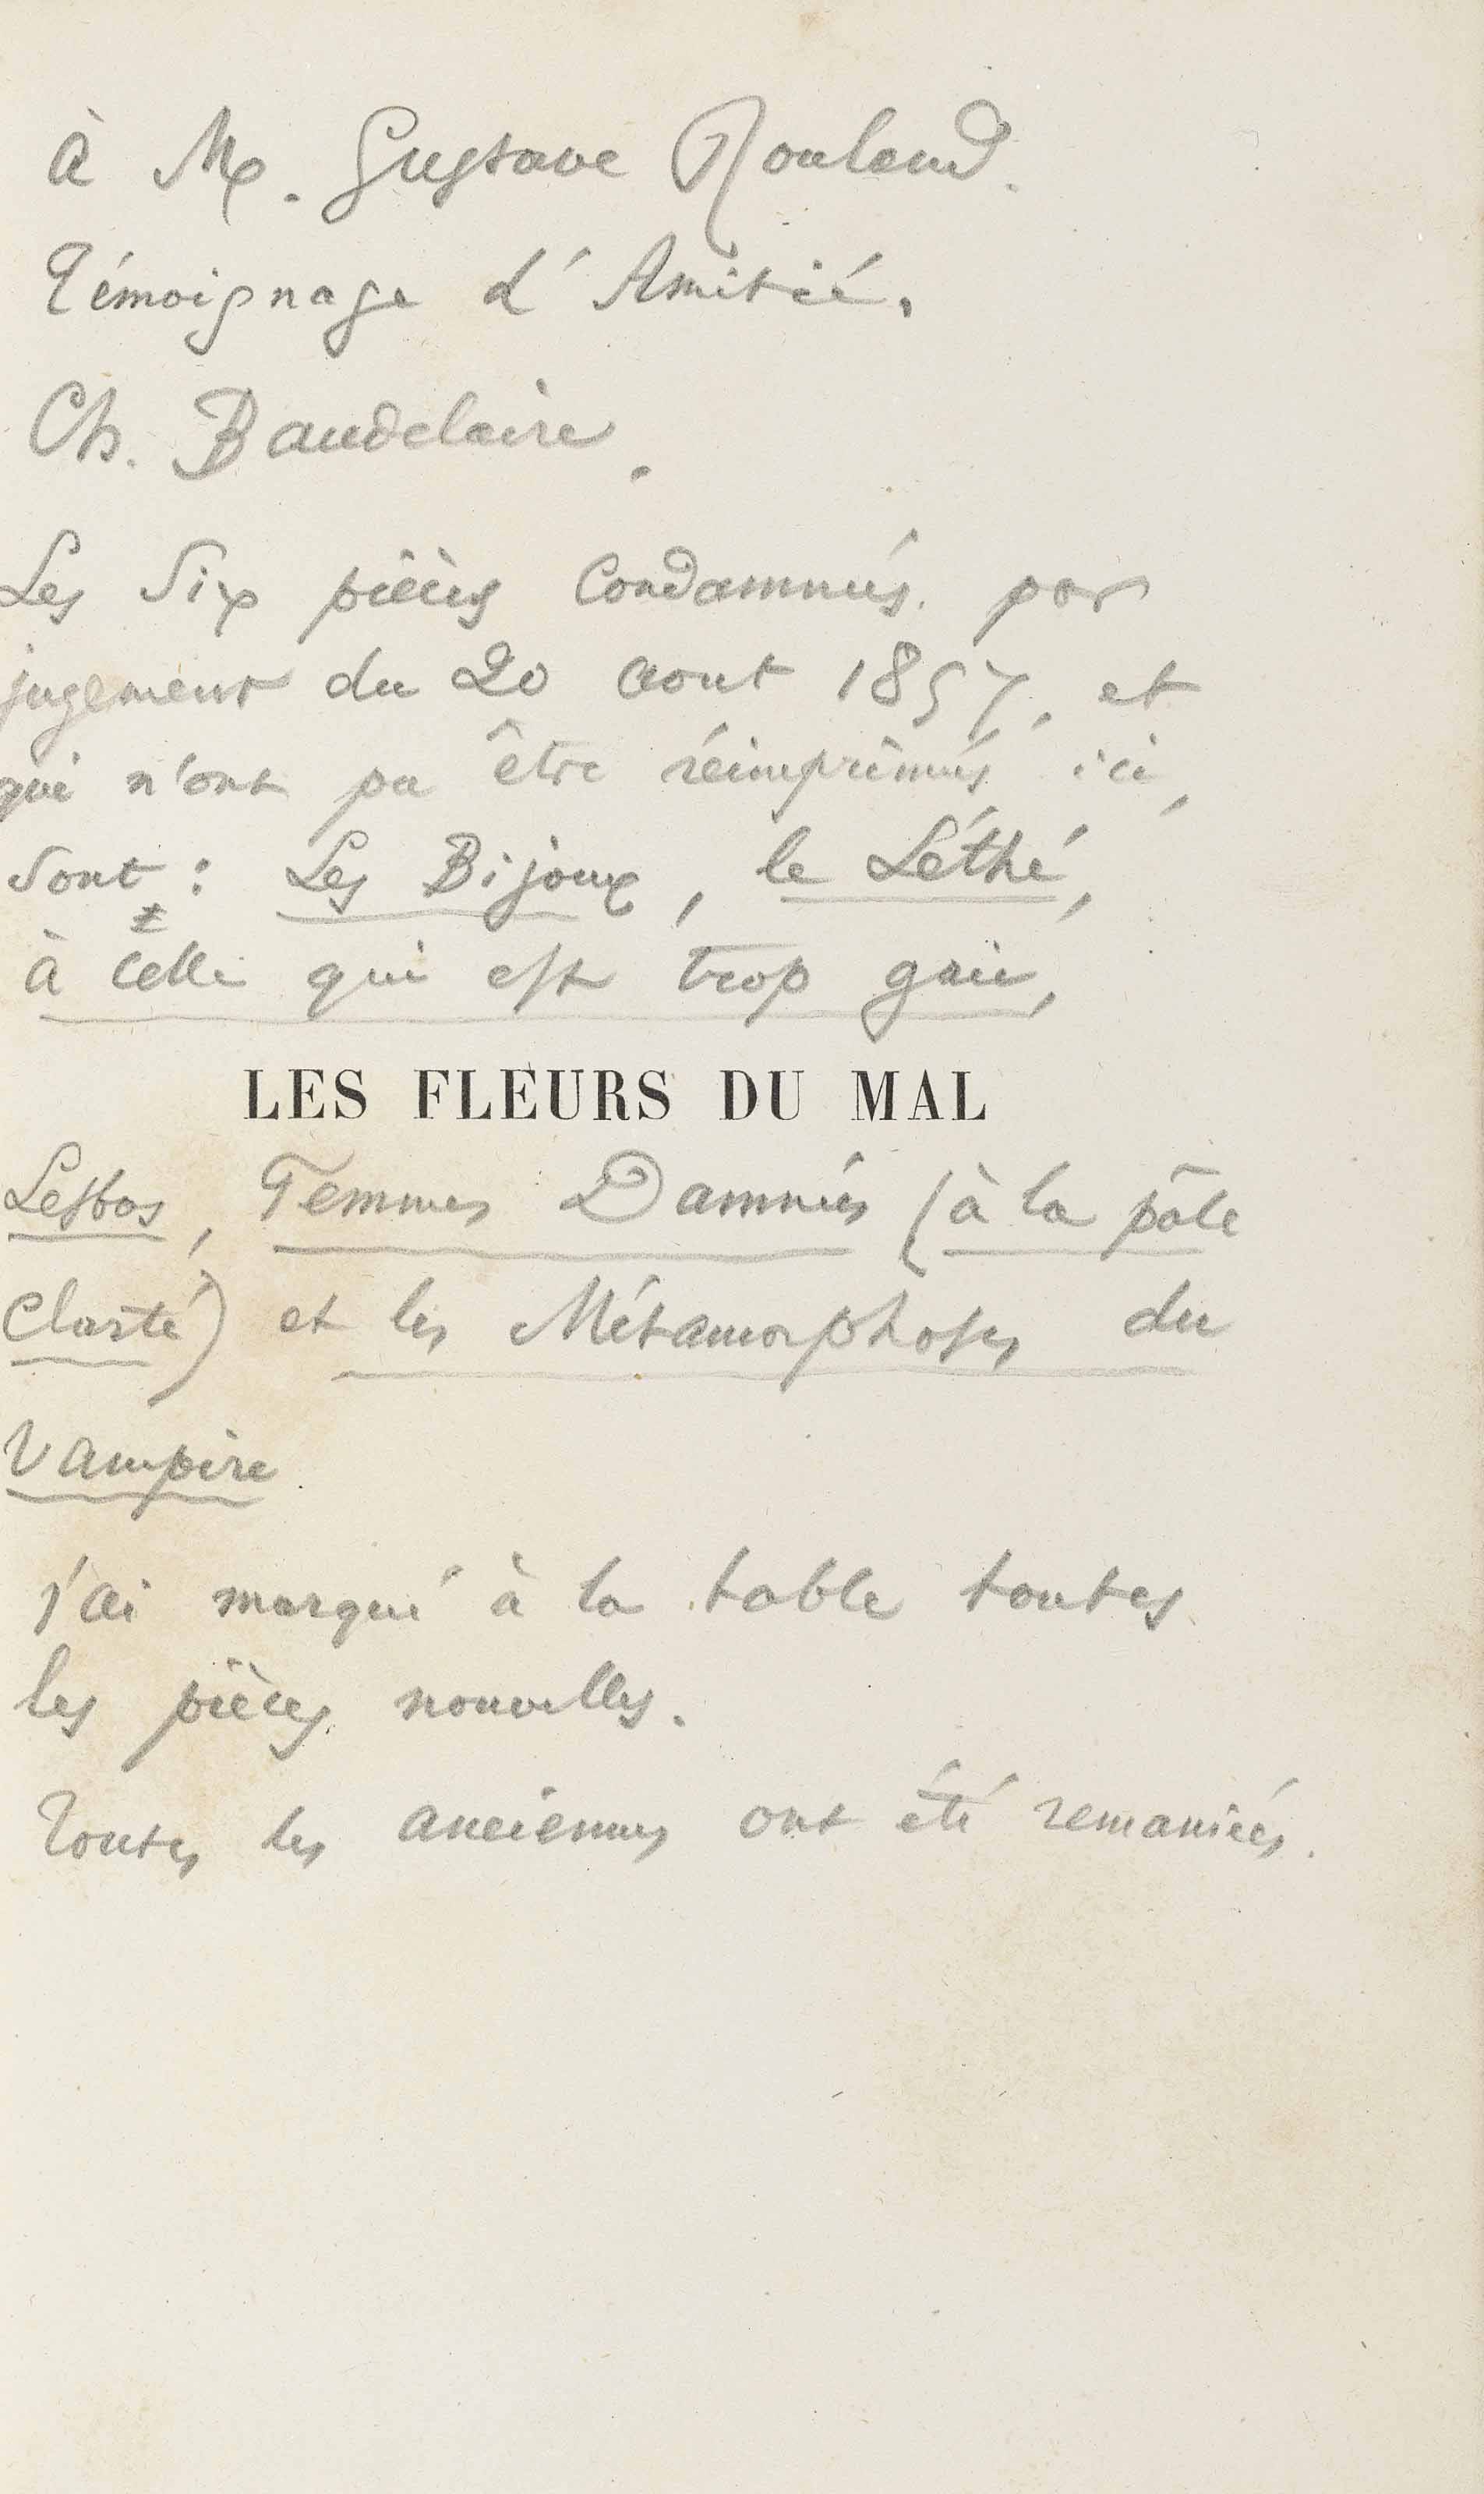 à Mr. Gustave Rouland.
Témoignage d'Amitié.
Ch. Baudelaire.
Les Six pièces Condamnées par
jugement du 20 aout 1857, et
qui n'ont pu être réimprimées ici,
sont : Les Bijoux, le Léthé,
à Celle qui est trop gaie,
LES FLEURS DU MAL
Lesbos, Femmes Damnées (à la pâle
Clarté) et les Métamorphoses du
Vampire
j'ai marqué à la table toutes
les pièces nouvelles.
Toutes les anciennes ont été remaniées.